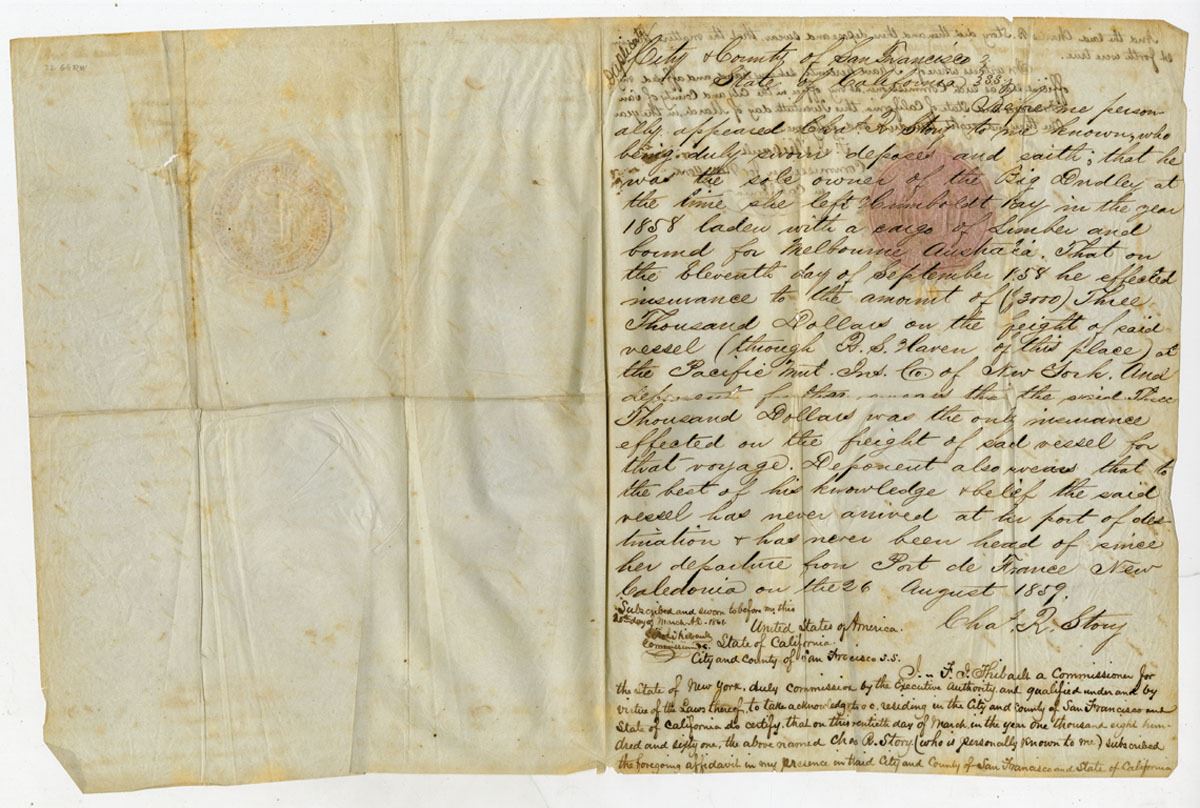 Duplicate
City & County of San Francisco
State of California } SS.
Before me person-
ally appeared Chas R. Story to me known, who
being duly sworn deposes and saith; that he
was the sole owner of the Brig Dudley at
the time she left Humboldt Bay in the year
1858 laden with a cargo of Lumber and
bound for Melbourne Australia. That on
the Eleventh day of September 1858 he effected
insurance to the amount of ($3000) Three
Thousand Dollars on the freight of said
vessel (through H. S. Haven of this place) at
the Pacific Mut. Ins. Co of New York. And
deponent further swears that the said Three
Thousand Dollars was the only insurance
effected on the freight of said vessel for
that voyage. Deponent also swears that to
the best of his knowledge & belief the said
vessel has never arrived at her port of des-
tination & has never been heard of since
her departure from Port de France New
Caledonia on the 26 August 1859.
Chas. R. Story
Subscribed and sworn to before me this
20th day of March A.D. 1861
Commissioner &c.
United States of America.
State of California.
City and County of San Francisco S.S.
I, F. J. Thibault a Commissioner for
the State of New York, duly commission by the Executive Authority, and qualified under and by
virtue of the Laws thereof, to take acknowledgts &c. residing in the City and County of San Francisco and
State of California do certify, that on this twentieth day of March, in the year one thousand eight hun-
dred and sixty one, the above named Chas R. Story (who is personally known to me) subscribed
the foregoing affidavit in my presence in said City and County of San Francisco and State of California